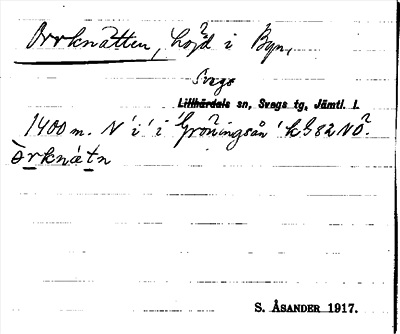 Orrknätten, höjd i Byn,
Svegs
Lillhärdals sn, Svegs tg, Jämtl. l.
1400 m. N i i Gröningsån k 982 NO.
òrknätn
S. ÅSANDER 1917.